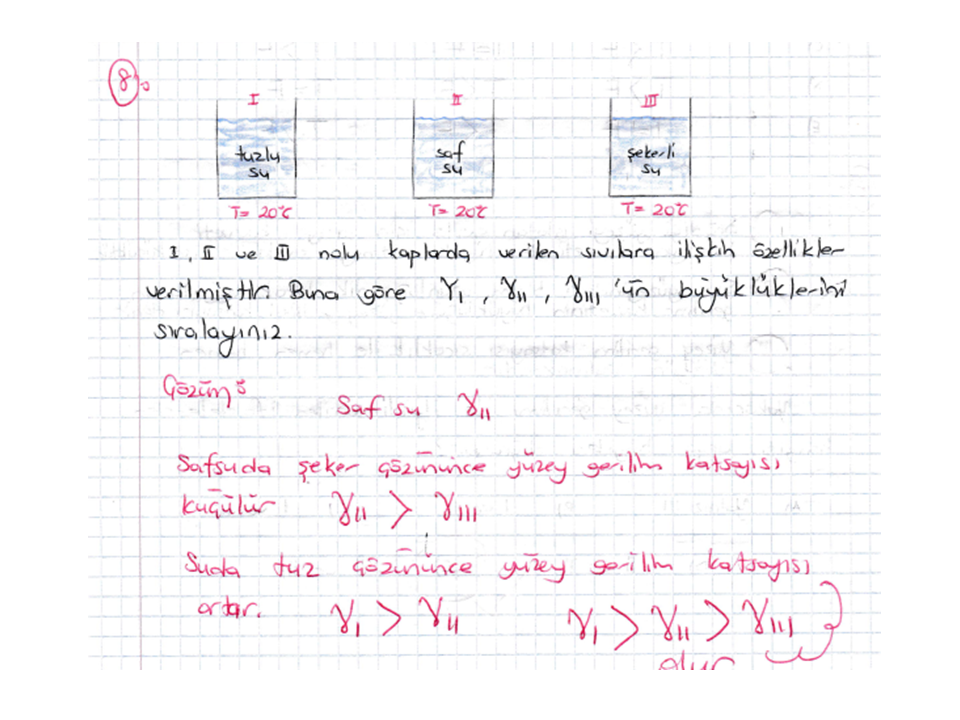 8.
I II III
tuzlu su saf su şekerli su
T= 20°C T= 20°C T= 20°C
I, II ve III nolu kaplarda verilen sıvılara ilişkin özellikler
verilmiştir. Buna göre γI, γII, γIII 'ün büyüklüklerini
sıralayınız.
Çözüm:
Saf su γII
Safsuda şeker çözününce yüzey gerilim katsayısı
küçülür γII > γIII
Suda tuz çözününce yüzey gerilim katsayısı
artar. γI > γII γI > γII > γIII
olur